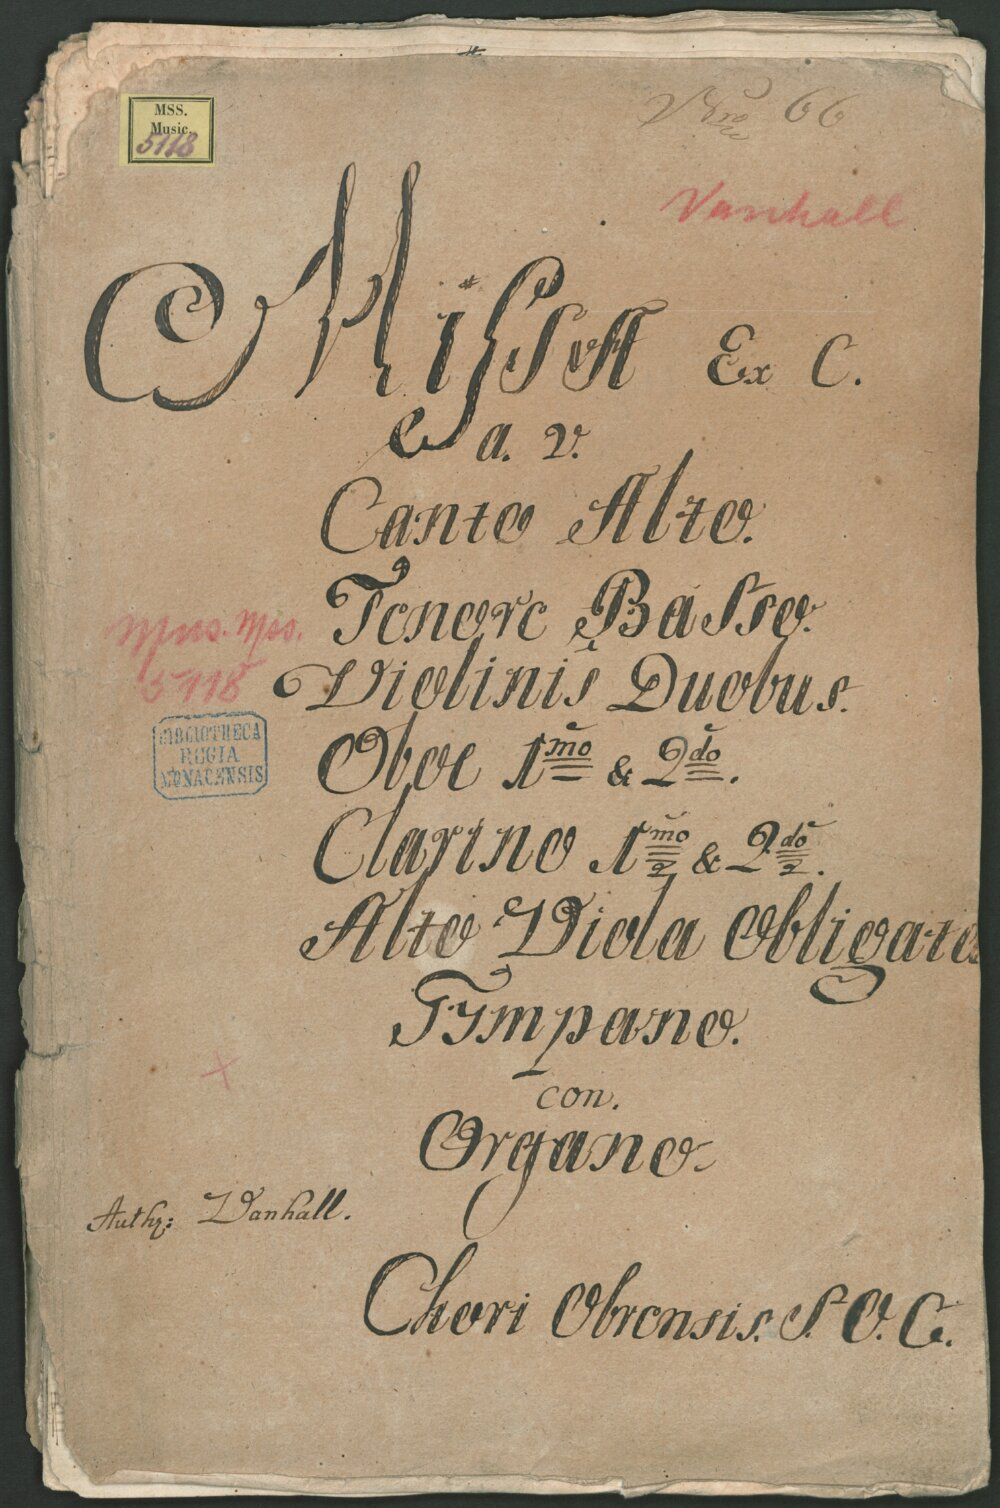 MSS.
Music.
5118
66
Vanhall
Missa Ex C.
a. v.
Canto Alto.
Tenore Basso.
Mus. Mss.
5118
Violinis Duobus.
BIBLIOTHECA
REGIA
MONACENSIS
Oboe 1mo & 2do.
Clarino 1mo & 2do.
Alto Viola Obligato
Tympano.
con.
Organo.
Auth: Vanhall.
Chori Obrensis. S. O. C.